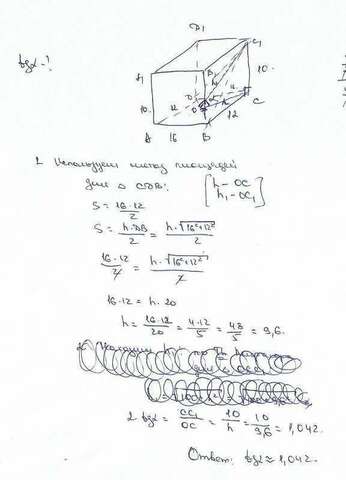 D1
C1
tgα - ?
A1
B1
10.
D
10
12
O
h
C
12
A
16
B
1. Используем метод площадей
для △ CDB:
[h - OC
h1 - OC1]
S = 16·12/2
S = h·DB/2 = h·√16²+12²/2
16·12/2 = h·√16²+12²/2
16·12 = h·20
h = 16·12/20 = 4·12/5 = 48/5 = 9,6.
2 tgα = CC1/OC = 10/h = 10/9,6 = 1,042.
Ответ: tgα ≈ 1,042.